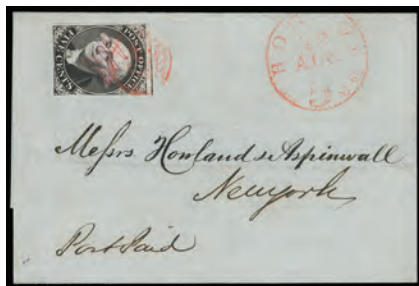 POST OFFICE
FIVE CENTS
BOSTON
AUG
Messrs Howland & Aspinwall
Newyork
Post Paid